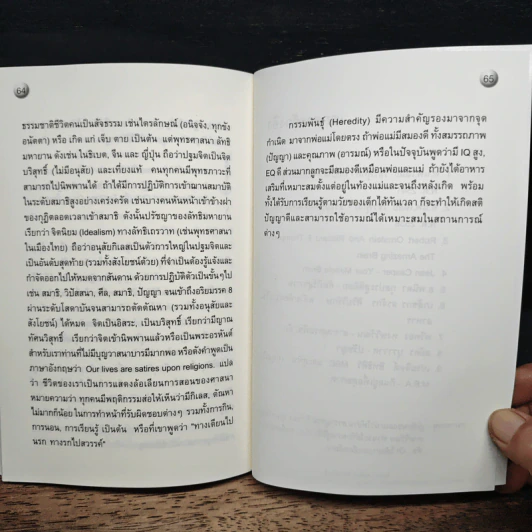 64
ธรรมชาติชีวิตคนเป็นสัจธรรม เช่นไตรลักษณ์ (อนิจจัง, ทุกขัง
อนัตตา) หรือ เกิด แก่ เจ็บ ตาย เป็นต้น แต่พุทธศาสนา ลัทธิ
มหายาน ดังเช่น ในธิเบต, จีน และ ญี่ปุ่น ถือว่าปฐมจิตเป็นจิต
บริสุทธิ์ (ไม่มีอนุสัย) และเที่ยงแท้ คนทุกคนมีพุทธภาวะที่
สามารถไปนิพพานได้ ถ้าได้มีการปฏิบัติการเข้าฌานสมาบัติ
ในระดับสมาธิสูงอย่างเคร่งครัด เช่นบางคนหันหน้าเข้าข้างฝา
ของกุฏิตลอดเวลาเข้าสมาธิ ดังนั้นปรัชญาของลัทธิมหายาน
เรียกว่า จิตนิยม (Idealism) ทางลัทธิเถรวาท (เช่นพุทธศาสนา
ในเมืองไทย) ถือว่าอนุสัยกิเลสเป็นตัวการใหญ่ในปฐมจิตและ
เป็นอันดับสุดท้าย (รวมทั้งสังโยชน์ด้วย) ที่จำเป็นต้องรู้แจ้งและ
กำจัดออกไปให้หมดจากสันดาน ด้วยการปฏิบัติตัวเป็นขั้นๆไป
เช่น สมาธิ, วิปัสสนา, ศีล, สมาธิ, ปัญญา จนเข้าถึงอริยมรรค 8
ผ่านระดับโสดาบันจนสามารถตัดตัณหา (รวมทั้งอนุสัยและ
สังโยชน์) ได้หมด จิตเป็นอิสระ, เป็นบริสุทธิ์ เรียกว่ามีญาณ
ทัศนวิสุทธิ์ เรียกว่าจิตเข้านิพพานแล้วหรือเป็นพระอรหันต์
สำหรับเราท่านที่ไม่มีบุญวาสนาบารมีมากพอ หรือดังคำพูดเป็น
ภาษาอังกฤษว่า Our lives are satires upon religions. แปล
ว่า ชีวิตของเราเป็นการแสดงล้อเลียนการสอนของศาสนา
หมายความว่า ทุกคนมีพฤติกรรมส่อให้เห็นว่ามีกิเลส, ตัณหา
ไม่มากก็น้อย ในการทำหน้าที่รับผิดชอบต่างๆ รวมทั้งการกิน,
การนอน, การเรียนรู้ เป็นต้น หรือที่เขาพูดว่า "ทางเตียนไป
นรก ทางรกไปสวรรค์"
65
กรรมพันธุ์ (Heredity) มีความสำคัญรองมาจากจุด
กำเนิด มาจากพ่อแม่โดยตรง ถ้าพ่อแม่มีสมองดี ทั้งสมรรถภาพ
(ปัญญา) และคุณภาพ (อารมณ์) หรือในปัจจุบันพูดว่ามี IQ สูง,
EQ ดี ส่วนมากลูกจะมีสมองดีเหมือนพ่อและแม่ ถ้ายังได้อาหาร
เสริมที่เหมาะสมตั้งแต่อยู่ในท้องแม่และจนถึงหลังเกิด พร้อม
ทั้งได้รับการเรียนรู้ตามวัยของเด็กได้ทันเวลา ก็จะทำให้เกิดสติ
ปัญญาดีและสามารถใช้อารมณ์ได้เหมาะสมในสถานการณ์
ต่างๆ